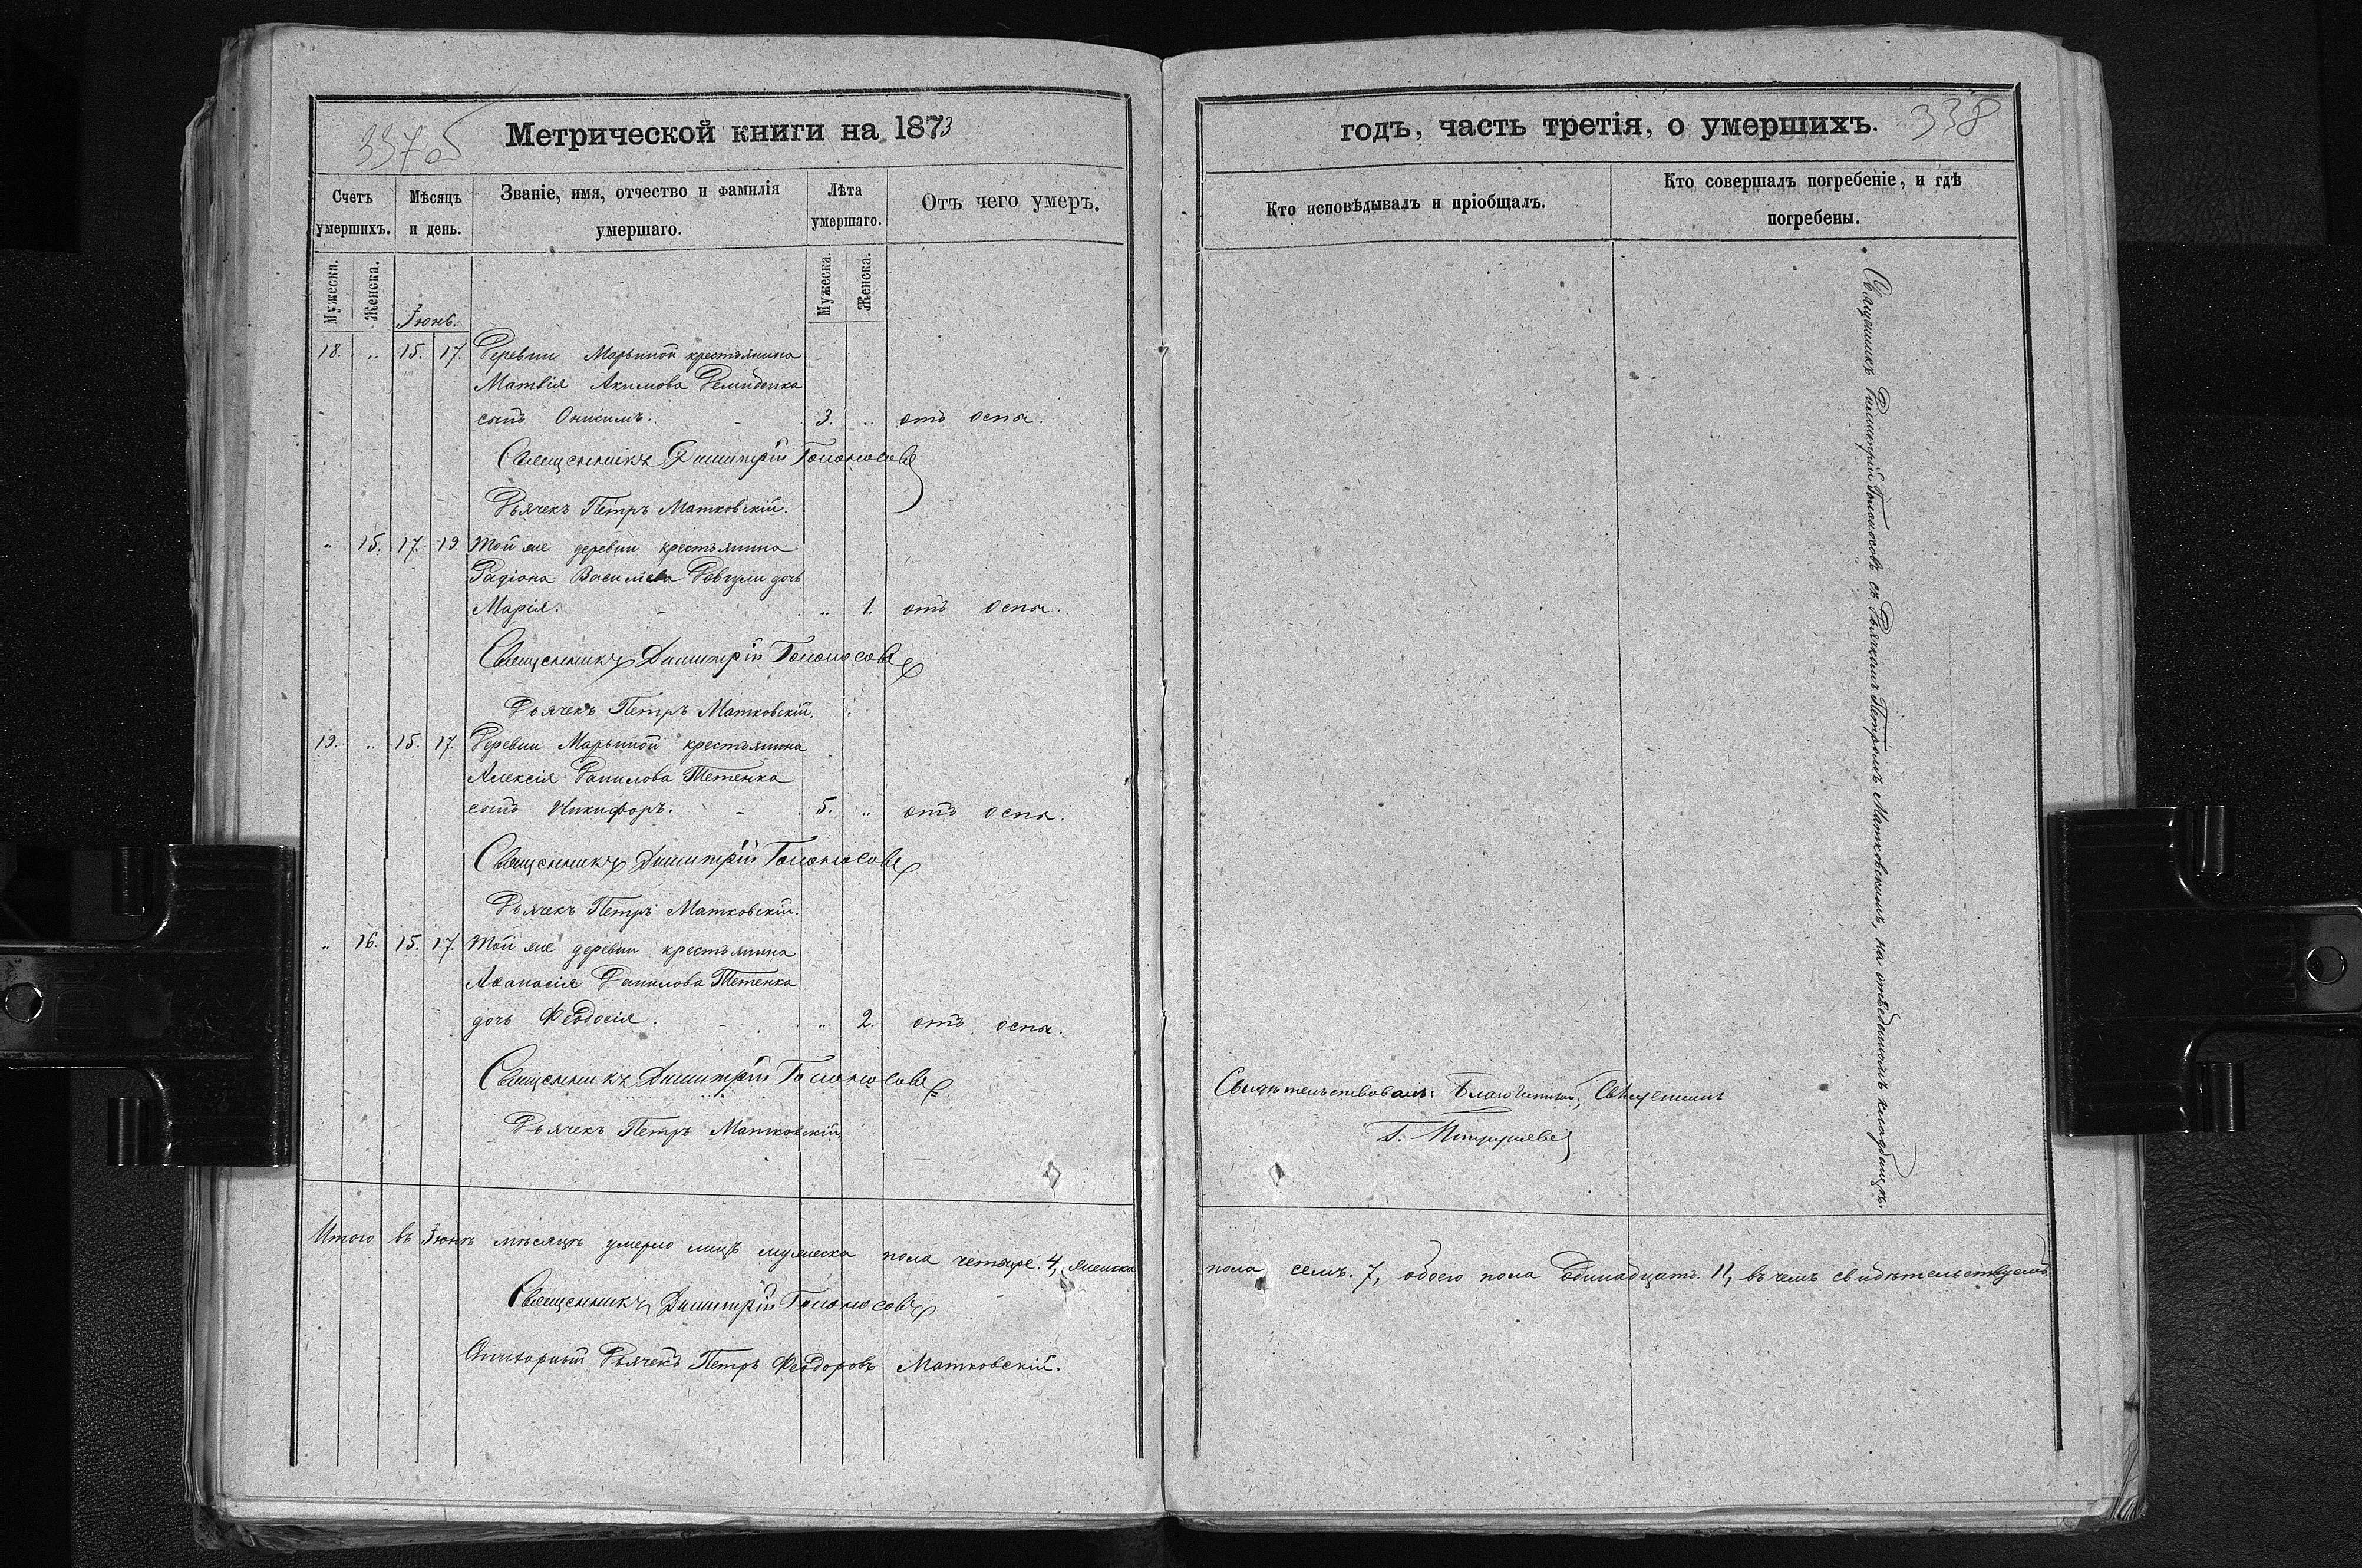 337об
Метрической книги на 1873
Счетъ умершихъ.
Мѣсяцъ и день.
Званіе, имя, отчество и фамилія умершаго.
Лѣта умершаго.
Отъ чего умеръ.
Мужеска.
Женска.
Іюнь.
Мужеска.
Женска.
18. „ 15. 17. Деревни Марьиной крестьянина
Матвія Акимова Демиденка
сынъ Онисимъ. 3. „ отъ оспы.
Священникъ Димитрій Голоносовъ
Дьячекъ Петръ Матковскій.
„ 15. 17. 19. Той же деревни крестьянина
Радіона Василіева Довгули дочь
Марія. „ 1. отъ оспы.
Священникъ Димитрій Голоносовъ
Дьячекъ Петръ Матковскій.
19. „ 15. 17. Деревни Марьиной крестьянина
Алексія Данилова Тетенка
сынъ Никифоръ. 5. „ отъ оспы.
Священникъ Димитрій Голоносовъ
Дьячекъ Петръ Матковскій.
„ 16. 15. 17. Той же деревни крестьянина
Аѳанасія Данилова Тетенка
дочь Феодосія. „ 2. отъ оспы.
Священникъ Димитрій Голоносовъ
Дьячекъ Петръ Матковскій.
Итого въ Іюнѣ мѣсяцѣ умерло лицъ мужеска пола четыре. 4, женска
Священникъ Димитрій Голоносовъ
Дьячекъ Петръ Феодоровъ Матковскій.
годъ, часть третія, о умершихъ. 338
Кто исповѣдывалъ и пріобщалъ.
Кто совершалъ погребеніе, и гдѣ погребены.
Священникъ Димитрій Голоносовъ съ Дьячкомъ Петромъ Матковскимъ, на отведенномъ кладбищѣ.
Свидѣтельствовалъ: Благочинный, Священникъ
пола семь. 7, обоего пола Одинадцать. 11, въ чемъ свидѣтельствуемъ.